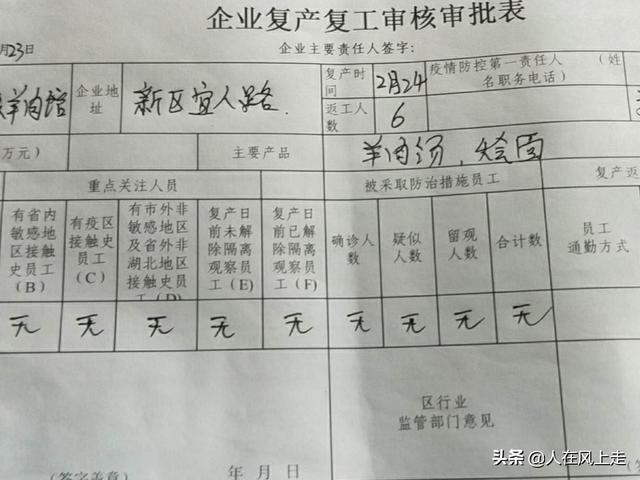 企业复产复工审核审批表
月23日
企业主要责任人签字:
羊肉馆
企业地址
新区宜人路
复产时间
2月24
疫情防控第一责任人(姓名职务电话)
返工人数
6
万元)
主要产品
羊肉汤、烩面
重点关注人员
被采取防治措施员工
复产返
有省内敏感地区接触史员工(B)
有疫区接触史员工(C)
有市外非敏感地区及省外非湖北地区接触史员工(D)
复产日前未解除隔离观察员工(E)
复产日前已解除隔离观察员工(F)
确诊人数
疑似人数
留观人数
合计数
员工通勤方式
无 无 无 无 无 无 无 无 无
区行业
监管部门意见
(签字盖章)
年 月 日
头条 @人在风上走